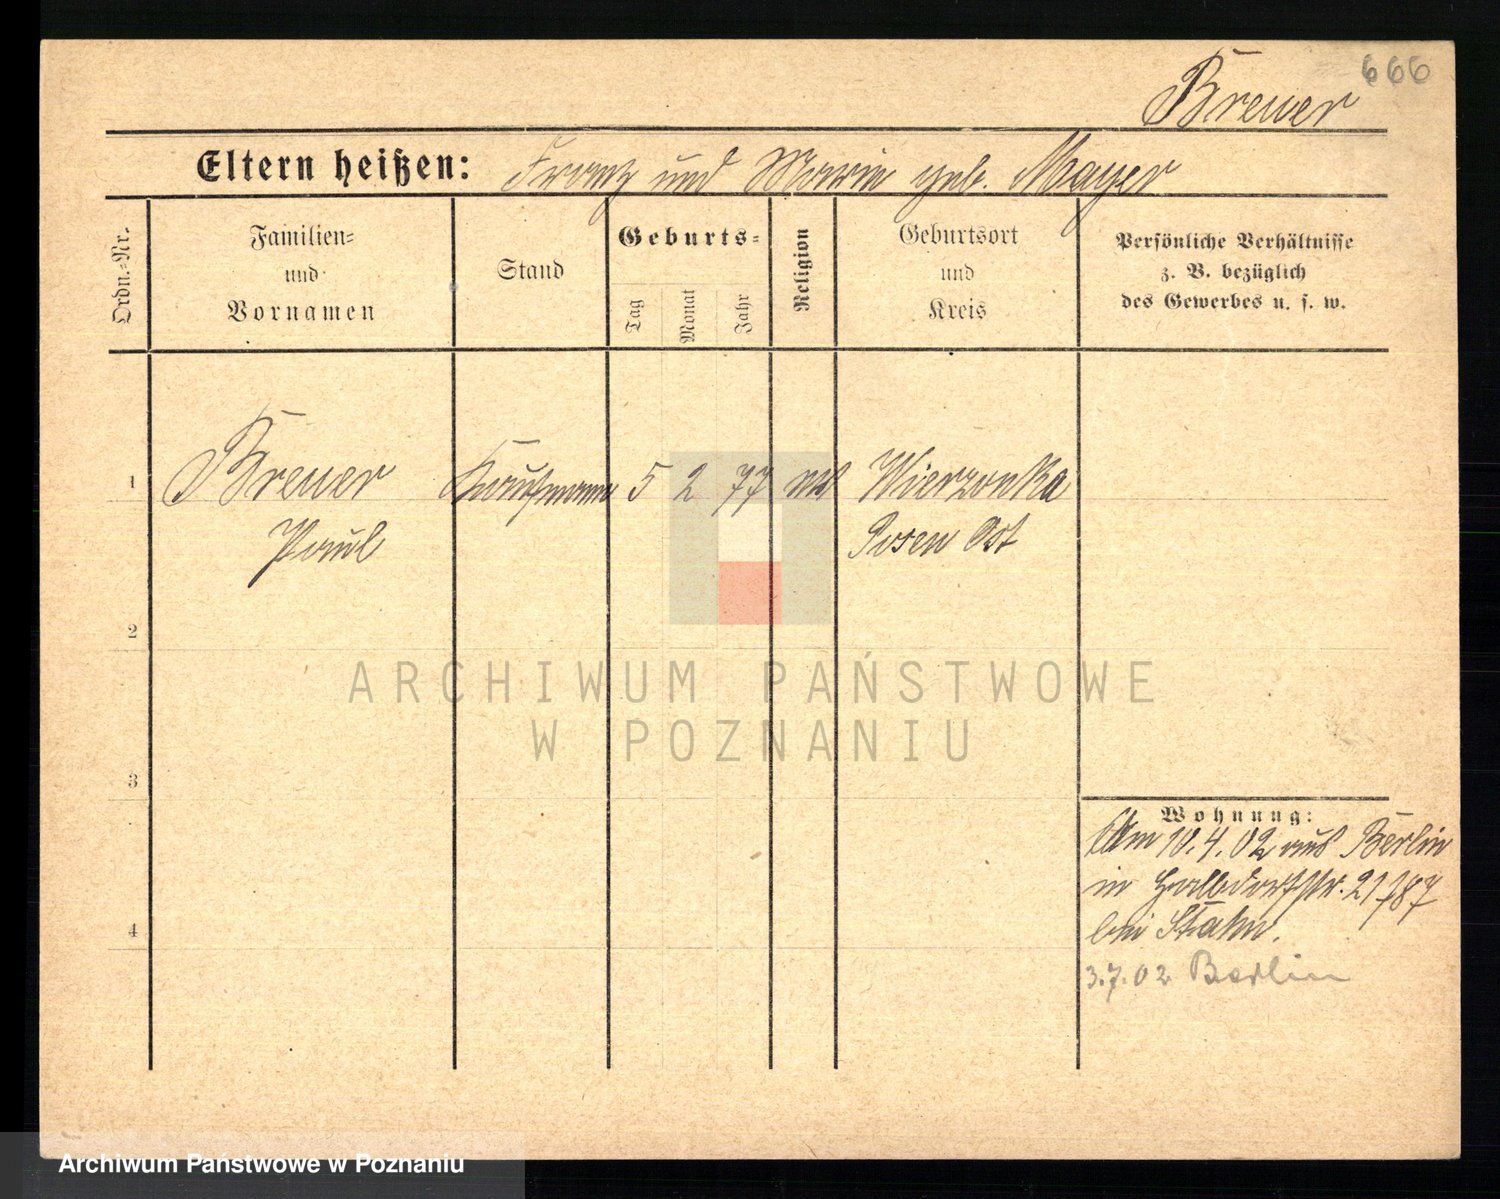 666
Brewer
Eltern heißen: Franz und Marie geb. Mayer
Ordn.=Nr.
Familien=
und
Vornamen
Stand
Geburts=
Tag
Monat
Jahr
Religion
Geburtsort
und
Kreis
Persönliche Verhältnisse
z. B. bezüglich
des Gewerbes u. s. w.
1
Brewer Kaufmann 5 2 77 Wierzonka
Paul Posen Ost
2
ARCHIWUM PAŃSTWOWE
W POZNANIU
3
Wohnung:
Am 10.4.02 aus Berlin
in Halbdorfstr. 21
bei Stahn.
4
3.7.02 Berlin
Archiwum Państwowe w Poznaniu